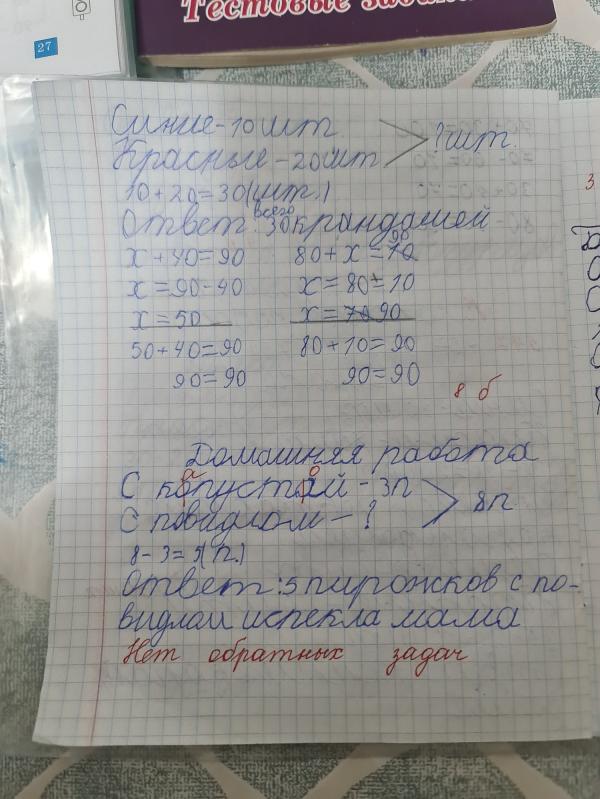 Тестовые зада
27
Синие-10шт.
Красные-20шт
?шт.
10+20=30(шт.)
Ответ: 30 всего крандашей
x+40=90
80+x=70 90
x=90-40
x=80±10
x=50
x=70 90
50+40=90
80+10=90
90=90
90=90
8 б
Домашняя работа
С копустай-3п
а о
С повидлом-?
8п
8-3=5(п.)
Ответ:5 пирожков с по-
видлом испекла мама
Нет обратных задач
3